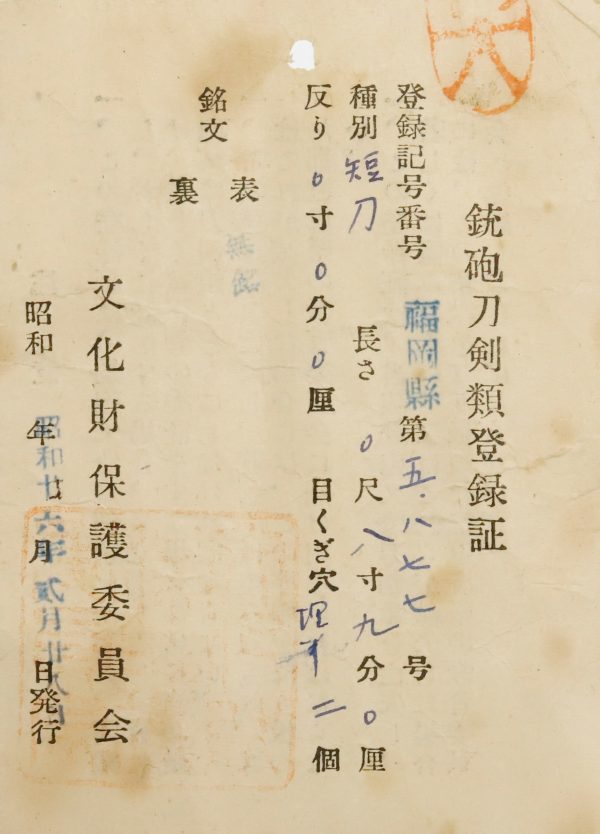 銃砲刀剣類登録証
登録記号番号 福岡縣 第五.八七七号
種別 短刀 長さ 〇尺八寸九分〇厘
反り 〇寸〇分〇厘 目くぎ穴 二個
銘文
表 無銘
裏
文化財保護委員会
昭和 年 月 日発行
昭和廿六年貳月廿八日